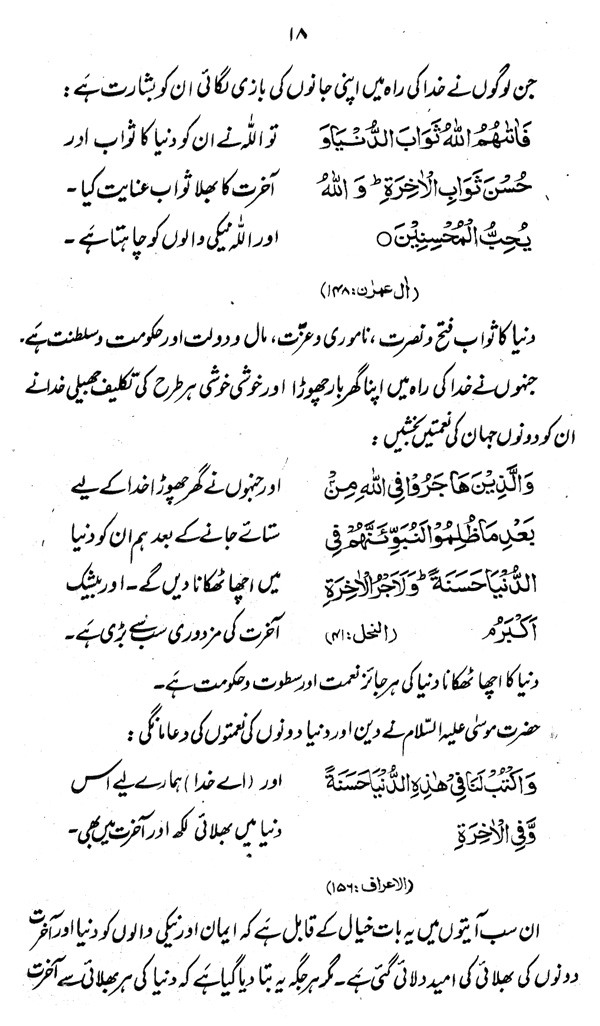 ۱۸
جن لوگوں نے خدا کی راہ میں اپنی جانوں کی بازی لگائی ان کو بشارت ہے :
فَاٰتٰىهُمُ اللّٰهُ ثَوَابَ الدُّنْيَا وَ تو اللہ نے ان کو دنیا کا ثواب اور
حُسْنَ ثَوَابِ الْاٰخِرَةِ ؕ وَ اللّٰهُ آخرت کا بھلا ثواب عنایت کیا ۔
يُحِبُّ الْمُحْسِنِيْنَ ○ اور اللہ نیکی والوں کو چاہتا ہے ۔
(اٰل عمرٰن : ۱۴۸)
دنیا کا ثواب فتح و نصرت ، ناموری و عزّت، مال و دولت اور حکومت و سلطنت ہے۔
جنہوں نے خدا کی راہ میں اپنا گھر بار چھوڑا اور خوشی خوشی ہر طرح کی تکلیف جھیلی خدا نے
ان کو دونوں جہان کی نعمتیں بخشیں :
وَالَّذِيْنَ هَاجَرُوْا فِي اللّٰهِ مِنْۢ اور جنہوں نے گھر چھوڑا خدا کے لیے
بَعْدِ مَا ظُلِمُوْا لَنُبَوِّئَنَّهُمْ فِي ستائے جانے کے بعد ہم ان کو دنیا
الدُّنْيَا حَسَنَةً ؕ وَلَاَجْرُ الْاٰخِرَةِ میں اچھا ٹھکانا دیں گے ۔ اور بیشک
اَكْبَرُ ۘ (النحل : ۴۱) آخرت کی مزدوری سب سے بڑی ہے ۔
دنیا کا اچھا ٹھکانا دنیا کی ہر جائز نعمت اور سطوت و حکومت ہے۔
حضرت موسیٰ علیہ السّلام نے دین اور دنیا دونوں کی نعمتوں کی دعا مانگی :
وَاكْتُبْ لَنَا فِيْ هٰذِهِ الدُّنْيَا حَسَنَةً اور (اے خدا) ہمارے لیے اس
وَّفِي الْاٰخِرَةِ دنیا میں بھلائی لکھ اور آخرت میں بھی۔
(الاعراف : ۱۵۶)
ان سب آیتوں میں یہ بات خیال کے قابل ہے کہ ایمان اور نیکی والوں کو دنیا اور آخرت
دونوں کی بھلائی کی امید دلائی گئی ہے۔ مگر ہر جگہ یہ بتا دیا گیا ہے کہ دنیا کی ہر بھلائی سے آخرت